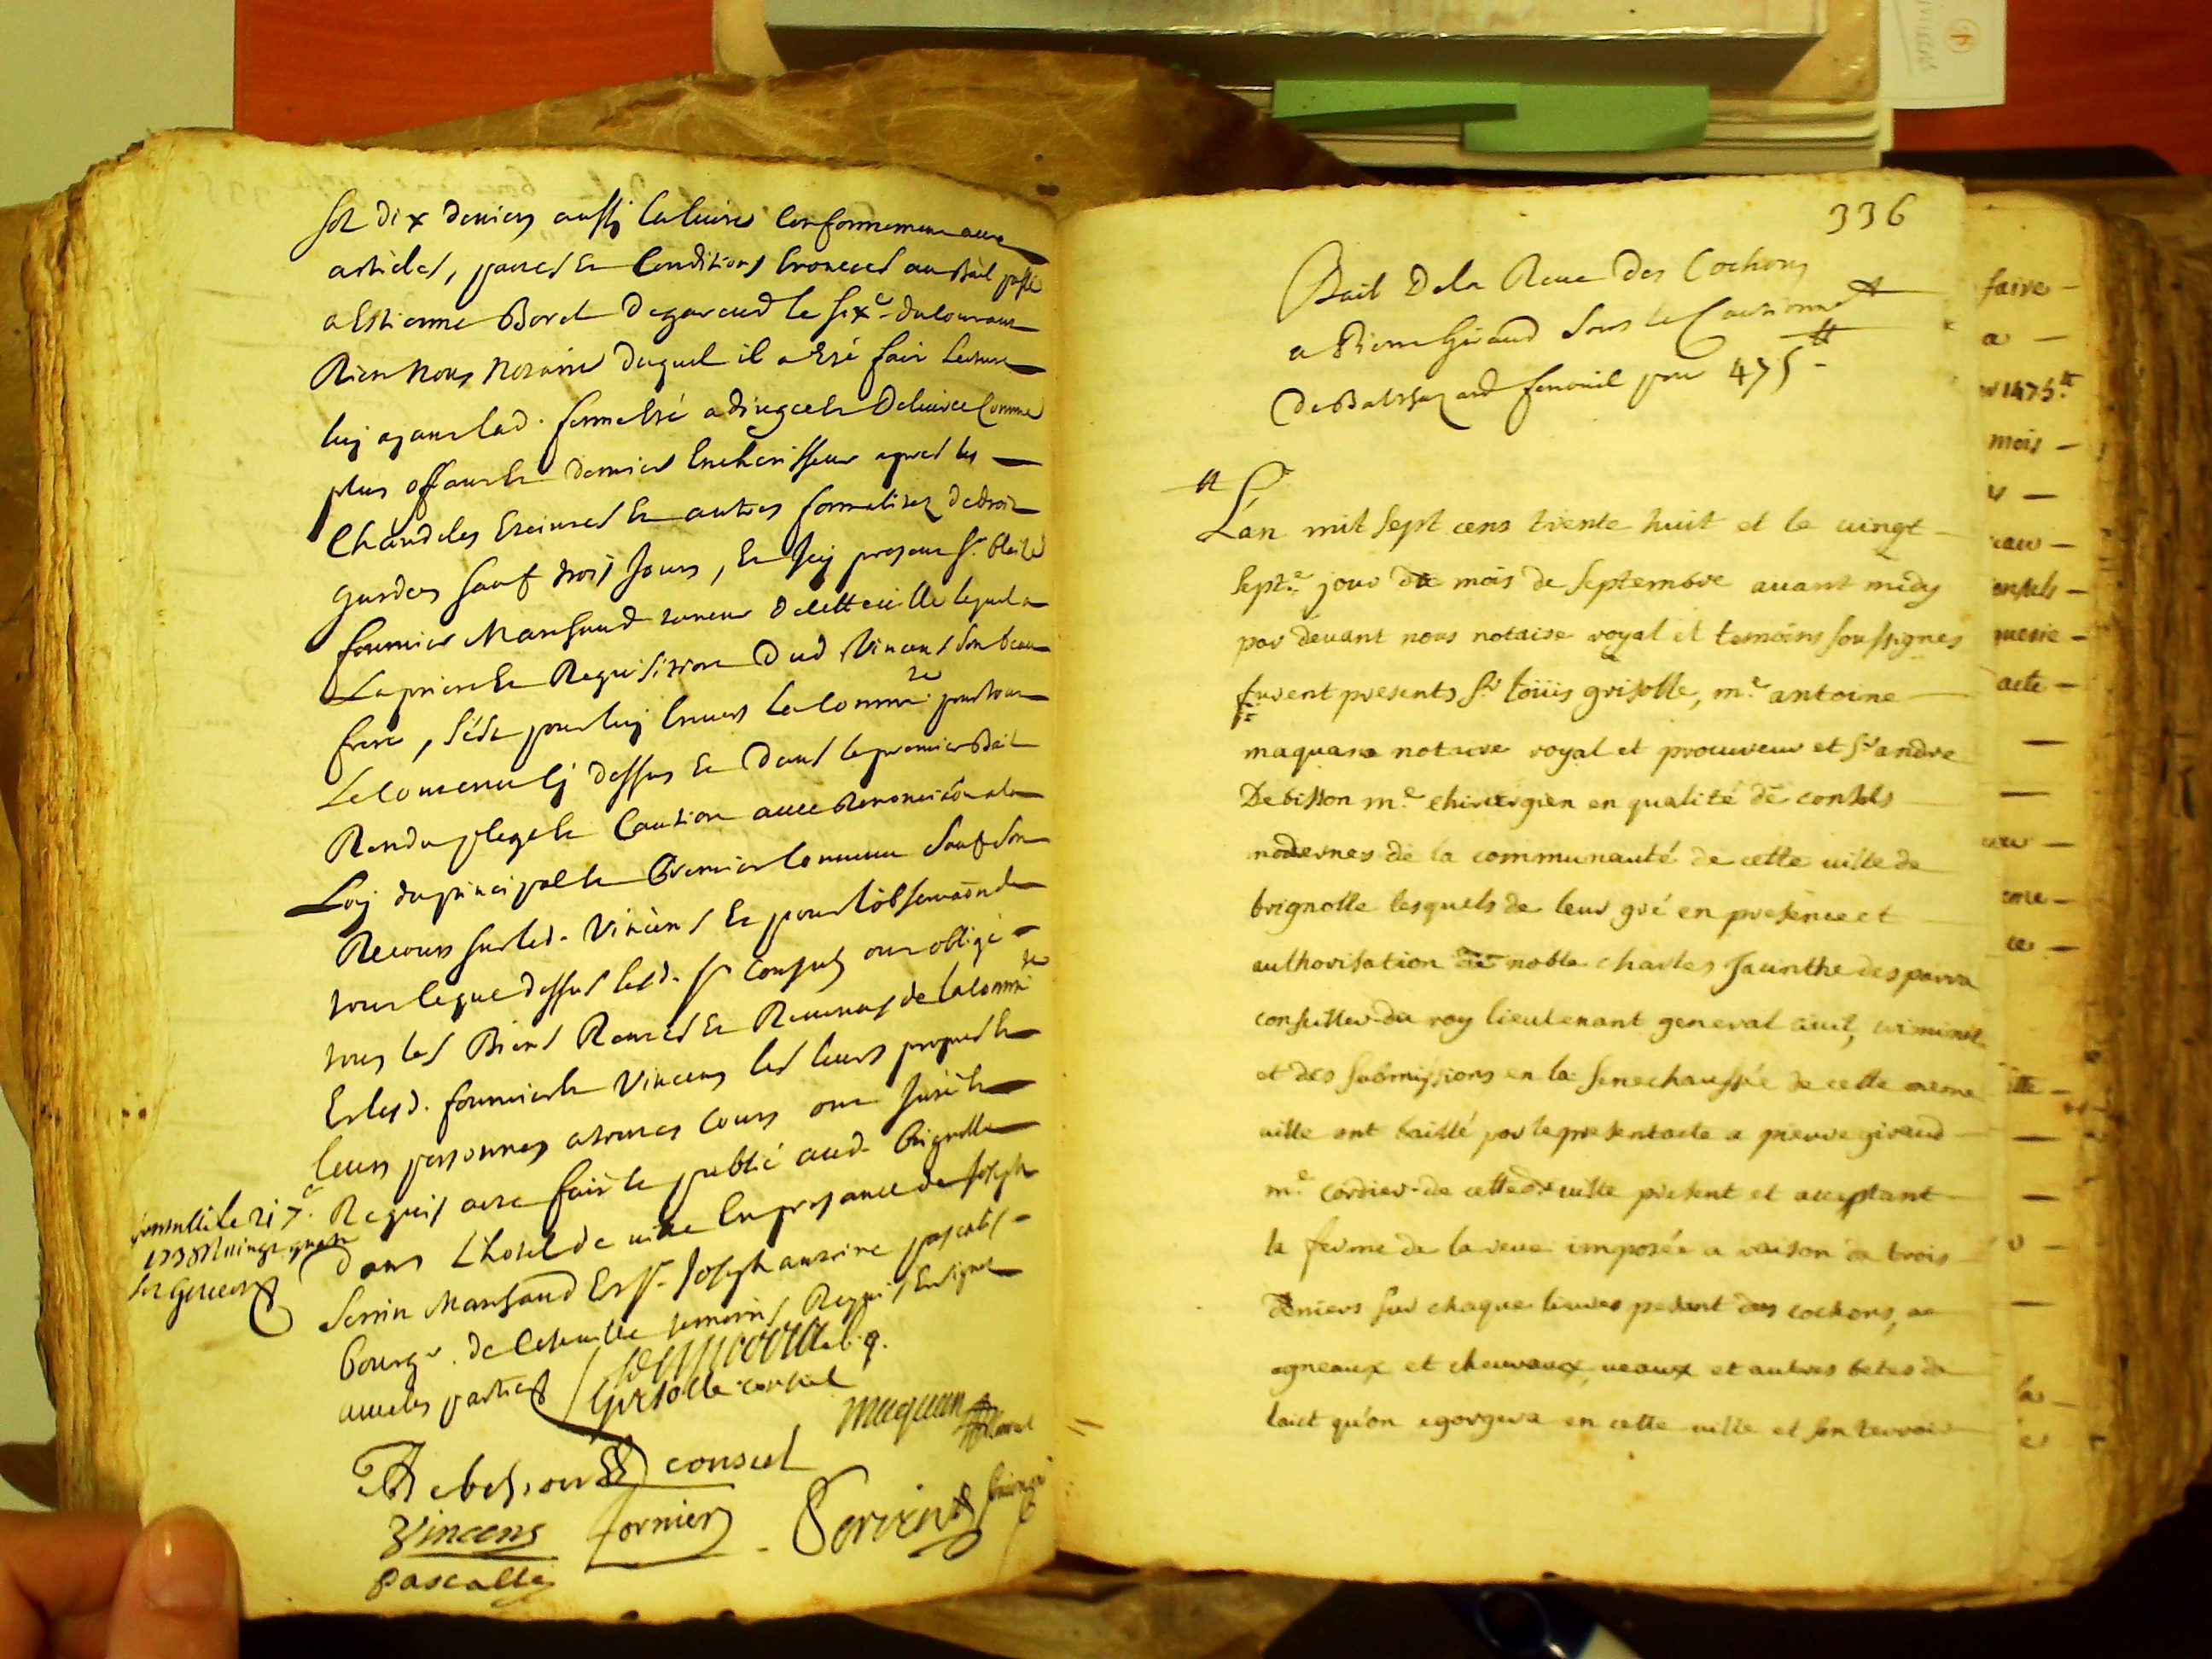 sol dix deniers aussi la livre conformement aux
articles, pactes et conditions enoncées au bail passé
a Estienne Borel de gareoud le six.e du courant
Rien nous notaire duquel il a esté fait lecture
luy ayant lad. ferme esté adjugée et delivrée comme
plus offrant et dernier encherisseur apres les
chandeles éteintes et autres formalitez de droit
gardées sauf trois jours, et icy present Sr. blaise
fournier marchand taneur de cette ville lequel a
la priere et Requisition dud Vincens son beau
frere, s'est pour luy envers la commté. pour tout
le contenu cy dessus et dans le premier Bail
Rendu plege et caution avec Renonciaôn a la
Loy du principal et Premier convenu sauf son
Recours sur led. Vincens et pour l'observaôn de
tout ce que dessus lesd. Srs Consuls ont obligé
tous les Biens Rentes et Revenus de la commté
Et lesd. fournier et Vincens les leurs propres et
leurs personnes a toutes Cours ont juré et
Requis acte fait et publié aud. Brignolle
dans L'hotel de ville en presance de Joseph
Serrin marchand Et Sr. Joseph antoine pascalis
bourgs. de cette ville temoins Requis Et signés
avec les parties
controllé le 21 7.e
1738
Grisolle consul
maquan
Debesson consul
Vincens fornier
Pascallis
336
Bail De la Reve Des Cochons
a Pierre Giraud sous le Cautionnet
De Balthazard fenouil pour 475 tt
L'an mil sept cens trente huit et le vingt
sept.e jour du mois de septembre avant midy
par devant nous notaire royal et temoins soussignes
furent presents Sr. loüis grisolle, m.e antoine
maquan notaire royal et procureur et Sr. andre
Debisson m.e chirurgien en qualité de consuls
modernes de la communauté de cette ville de
brignolle lesquels de leur gré en presence et
authorisation de noble charles Jacinthe desparra
conseiller du roy lieutenant general civil, criminel
et des submissions en la senechaussée de cette meme
ville ont baillé par le present acte a pierre giraud
m.e cordier de cetted. ville present et acceptant
la ferme de la reve imposée a raison de trois
deniers sur chaque livres pesant des cochons,
agneaux et chevraux, veaux et autres betes de
laict qu'on egorgera en cette ville et son terroir
faire
a
1475 tt
mois
acte